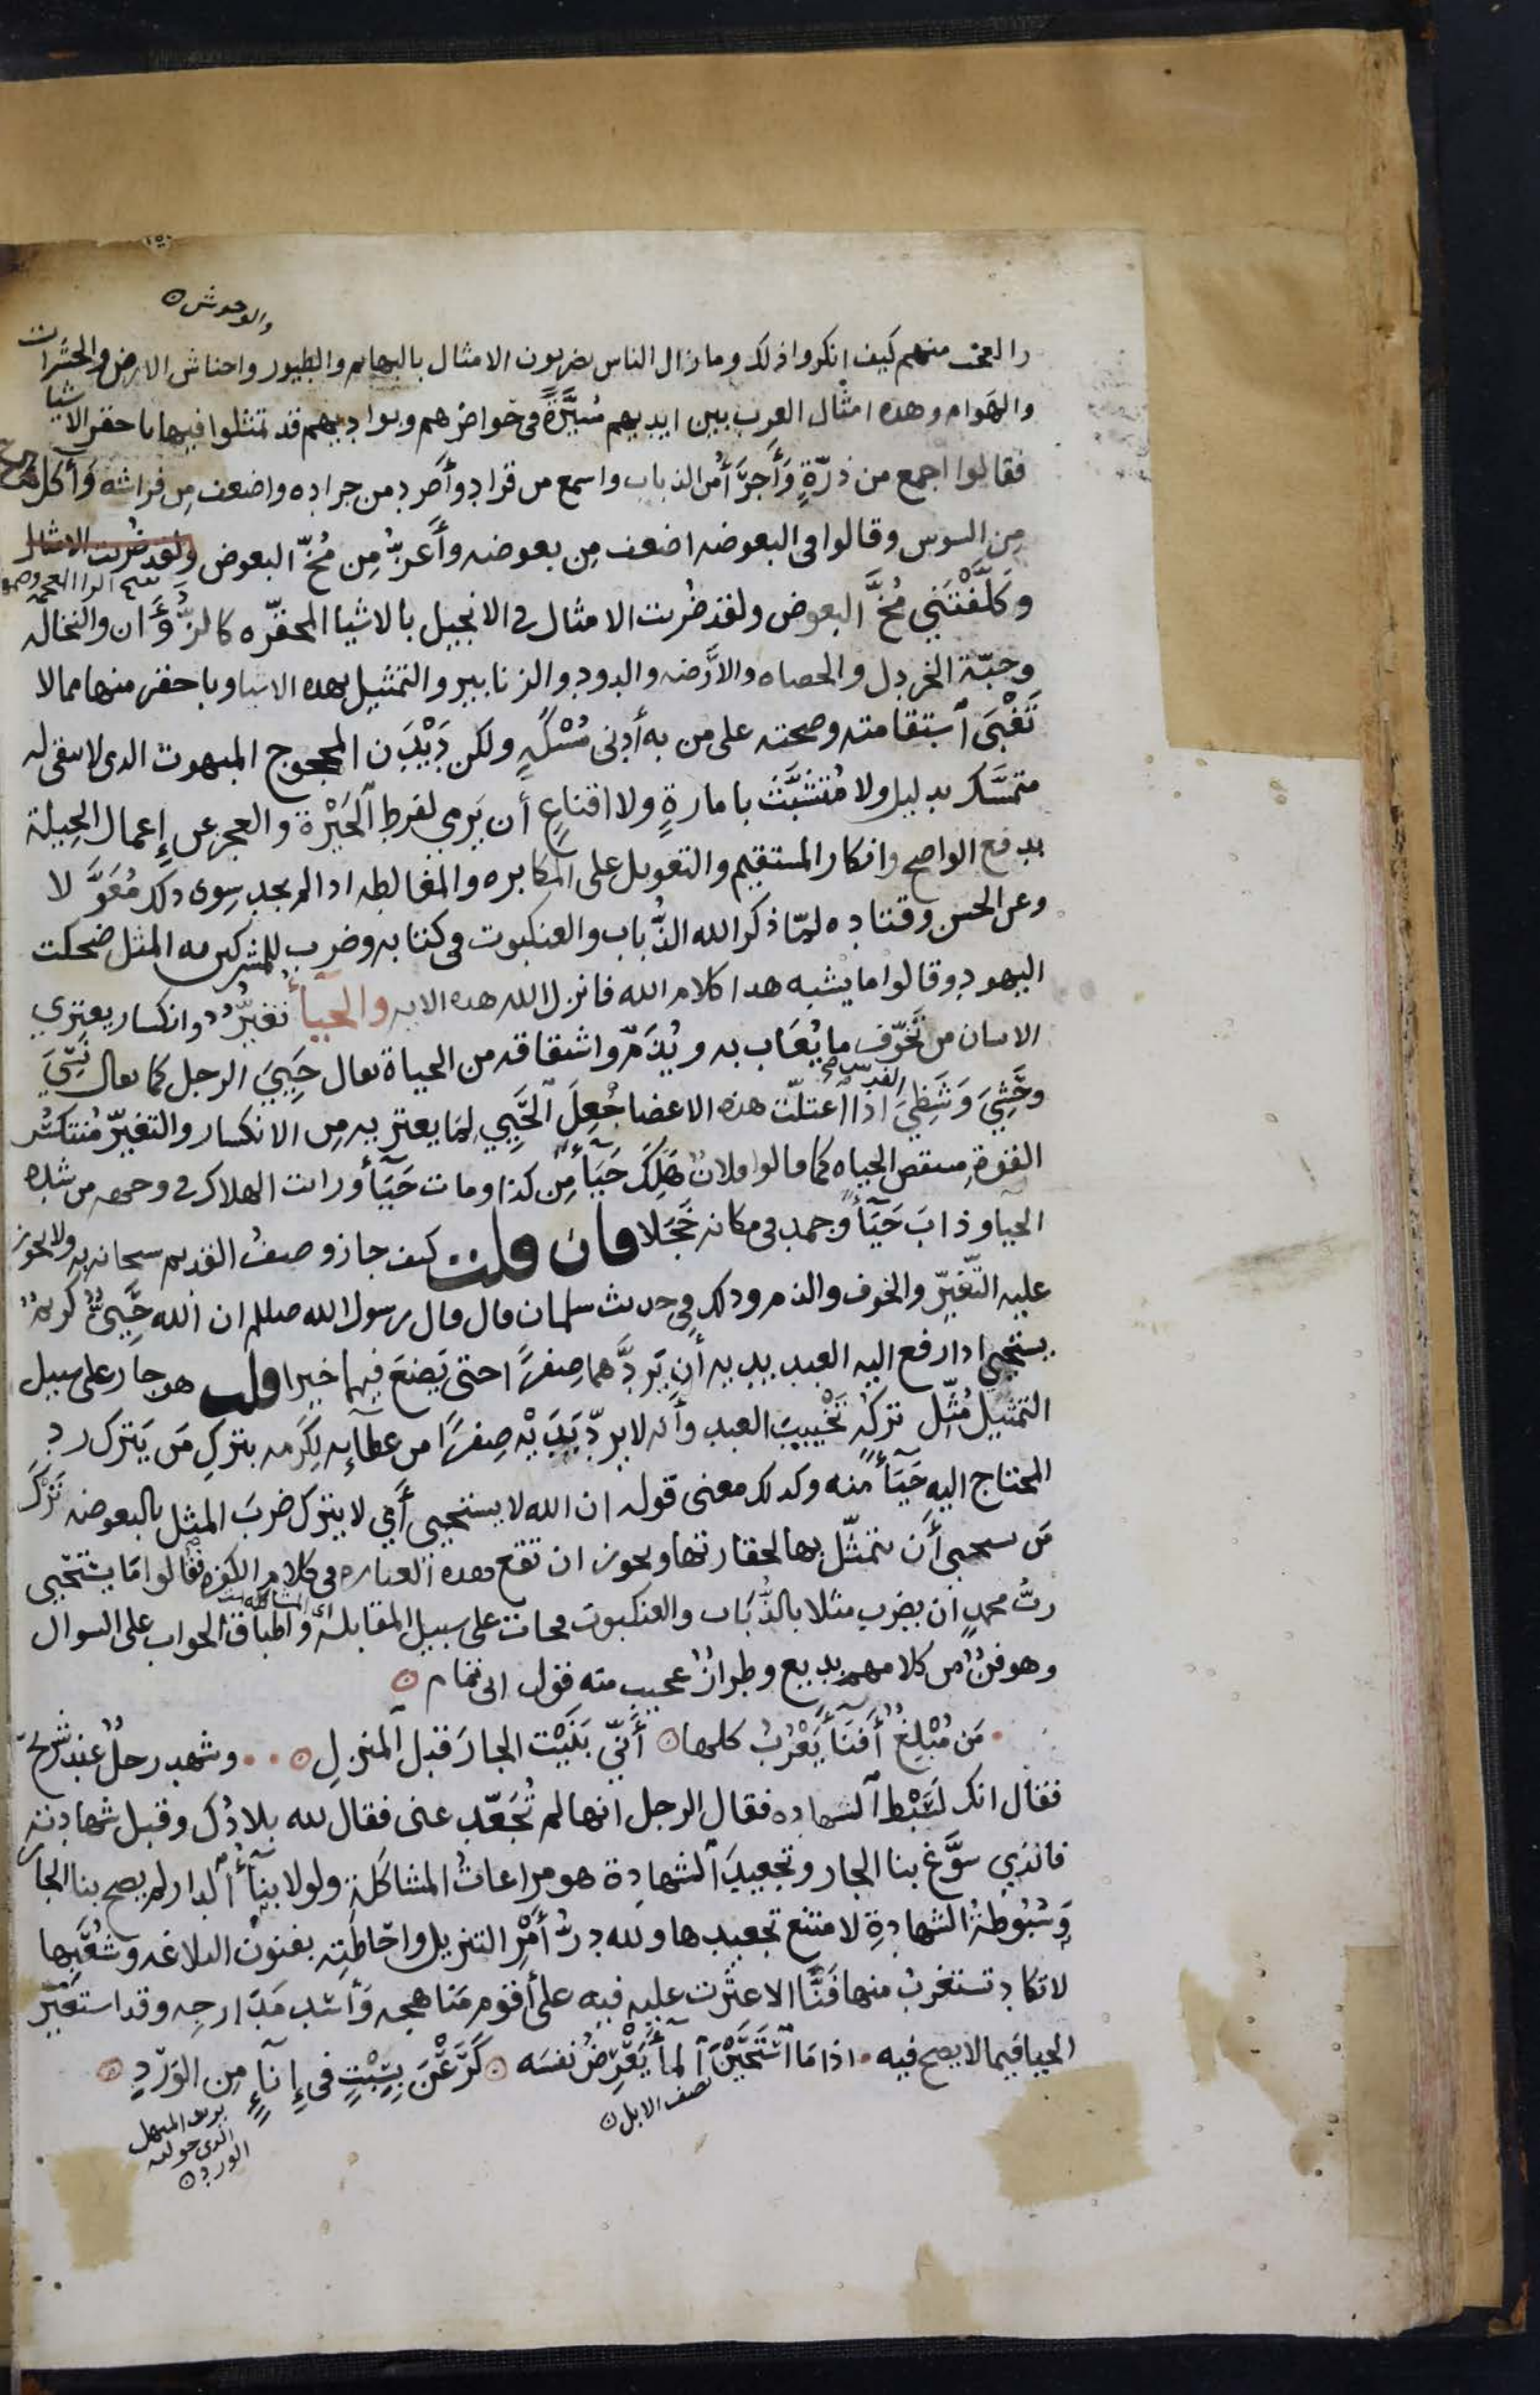 والوحوش
والعجب منهم كيف انكروا ذلك وما زال الناس يضربون الامثال بالبهائم والطيور واحناش الارض والحشرات
والهوام وهذه امثال العرب بين ايديهم مُسَيَّرَةً في حواضرهم وبواديهم قد تمثلوا فيها باحقر الاشيا
فقالوا اجمع من ذرّةٍ وَأَجرَأُ من الذباب واسمع من قراد وأَصرد من جراده واضعف مِن فراشه وَأكل
مِن السوس وقالوا في البعوضه اضعف مِن بعوضه وأَعزُّ مِن مُخّ البعوض ولقد ضُربت الامثال
وكَلَّفْتَني مُخَّ البعوض ولقد ضُربت الامثال في الانجيل بالاشيا المحقّره كالزُّؤَان والنخاله
وحبّة الخردل والحصاه والأَرَضه والدود والزنابير والتمثيل بهذه الاشيا وباحقر منها مما لا
تَغْبَى اَستقامته وصحته على من به أَدنى مُسْكَةٍ ولكن دَيْدَن المحجوج المبهوت الذي لا يبقى له
متمسَّك بدليل ولا مُتشبَّث بامارةٍ ولا اقناعٍ أن يَرمي لفرط اَلحَيْرة والعجز عن إِعمال الحِيلة
بدفع الواضح وانكار المستقيم والتعويل على المكابره والمغالطه اذا لم يجد سِوى ذلك مُعَوَّلا
وعن الحسن وقتاده لمّا ذكر الله الذُّباب والعنكبوت في كتابه وضرب للمشركين به المثل ضحكت
اليهود وقالوا ما يشبه هذا كلام الله فانزل الله هذه الايه والحيآءُ تغيُّرٌ وانكسار يعتري
الانسان من تَخَوّف ما يُعَاب به ويُذَمّ واشتقاقه من الحياة يقال حَيِيَ الرجل كما يقال نَسِيَ
وحَشِيَ وَشَظِيَ الفرس اذا اَعتلّت هذه الاعضا جُعِلَ اَلحَيِيّ لِمَا يعتريه مِن الانكسار والتغيّر مُنتكسَ
القوة منتقص الحياه كما قالوا فلانٌ هَلَكَ حَيآءً مِن كذا ومات حَيآءً ورايت الهلاك في وجهه من شده
الحيا وذابَ حَيآءً وجمد في مكانه خَجَلا فان قلت كيف جاز وصفُ القديم سبحانه به ولا يجوز
عليه التّغيّر والخوف والذم وذلك في حديث سلمان قال قال رسول الله صللم ان الله حَيِيٌّ كريمٌ
يستحيي اذا رفع اليه العبد يديه أن يَردَّهما صِفرًا حتى يَضعَ فيهما خيرا قلت هو جار على سبيل
التمثيل مُثِّل تركُه تَخييبَ العبد وأنه لا يردّ يَدَيْه صِفرًا من عطآئه لِكَرمه بتركِ مَن يَترك رد
المحتاج اليه حَيآءً منه وكذلك معنى قوله ان الله لا يستحيي أَي لا يترك ضربَ المثل بالبعوضه تَرْكَ
مَن يستحيي أَن يتمثّل بها لحقارتها ويجوز ان تقع هذه العباره في كلام الكفره فقالوا امَا يستحيي
ربُّ محمدٍ ان يضرب مثلا بالذُّباب والعنكبوت فجات على سبيل المقابله واطباق الجواب على السوال
وهو فنٌّ من كلامهم بديع وطرازٌ عجيب منه قول ابي تمام
مَن مُبْلِغٌ أَفنآءَ يَعْرُبَ كلها أَنّي بَنَيْت الجارَ قبل اَلمنزلِ وشهد رجلٌ عند شُرَيحٍ
فقال انك لَسَبْط اَلشهاده فقال الرجل انها لم تُجَعّد عني فقال لله بلادُك وقبل شهادته
فالذي سَوَّغ بنا الجار وتجعيدَ اَلشهادة هو مراعاتُ المشاكلة ولولا بنآءُ اَلدار لم يصح بنا الجار
وَسُبُوطةُ الشهادةِ لامتنع تجعيدها ولله درُّ أمْرِ التنزيل واحَاطَتِه بفنون البلاغه وشُعَبِها
لا تكاد تستغربُ منها فَنًّا الا عثرت عليه فيه على أقوم مَناهجه وَأسَد مَدَارجِه وقد استعير
الحيا فيما لا يصح فيه اذا مَا اَسْتَحَيْنَ اَلمآءَ يَعْرِضُ نفسَه كَرَعْنَ بِسِبْتٍ في إِنآءٍ مِن الوَرْدِ
نصف الابل
يريد المنهل
الذي حوله
الورد